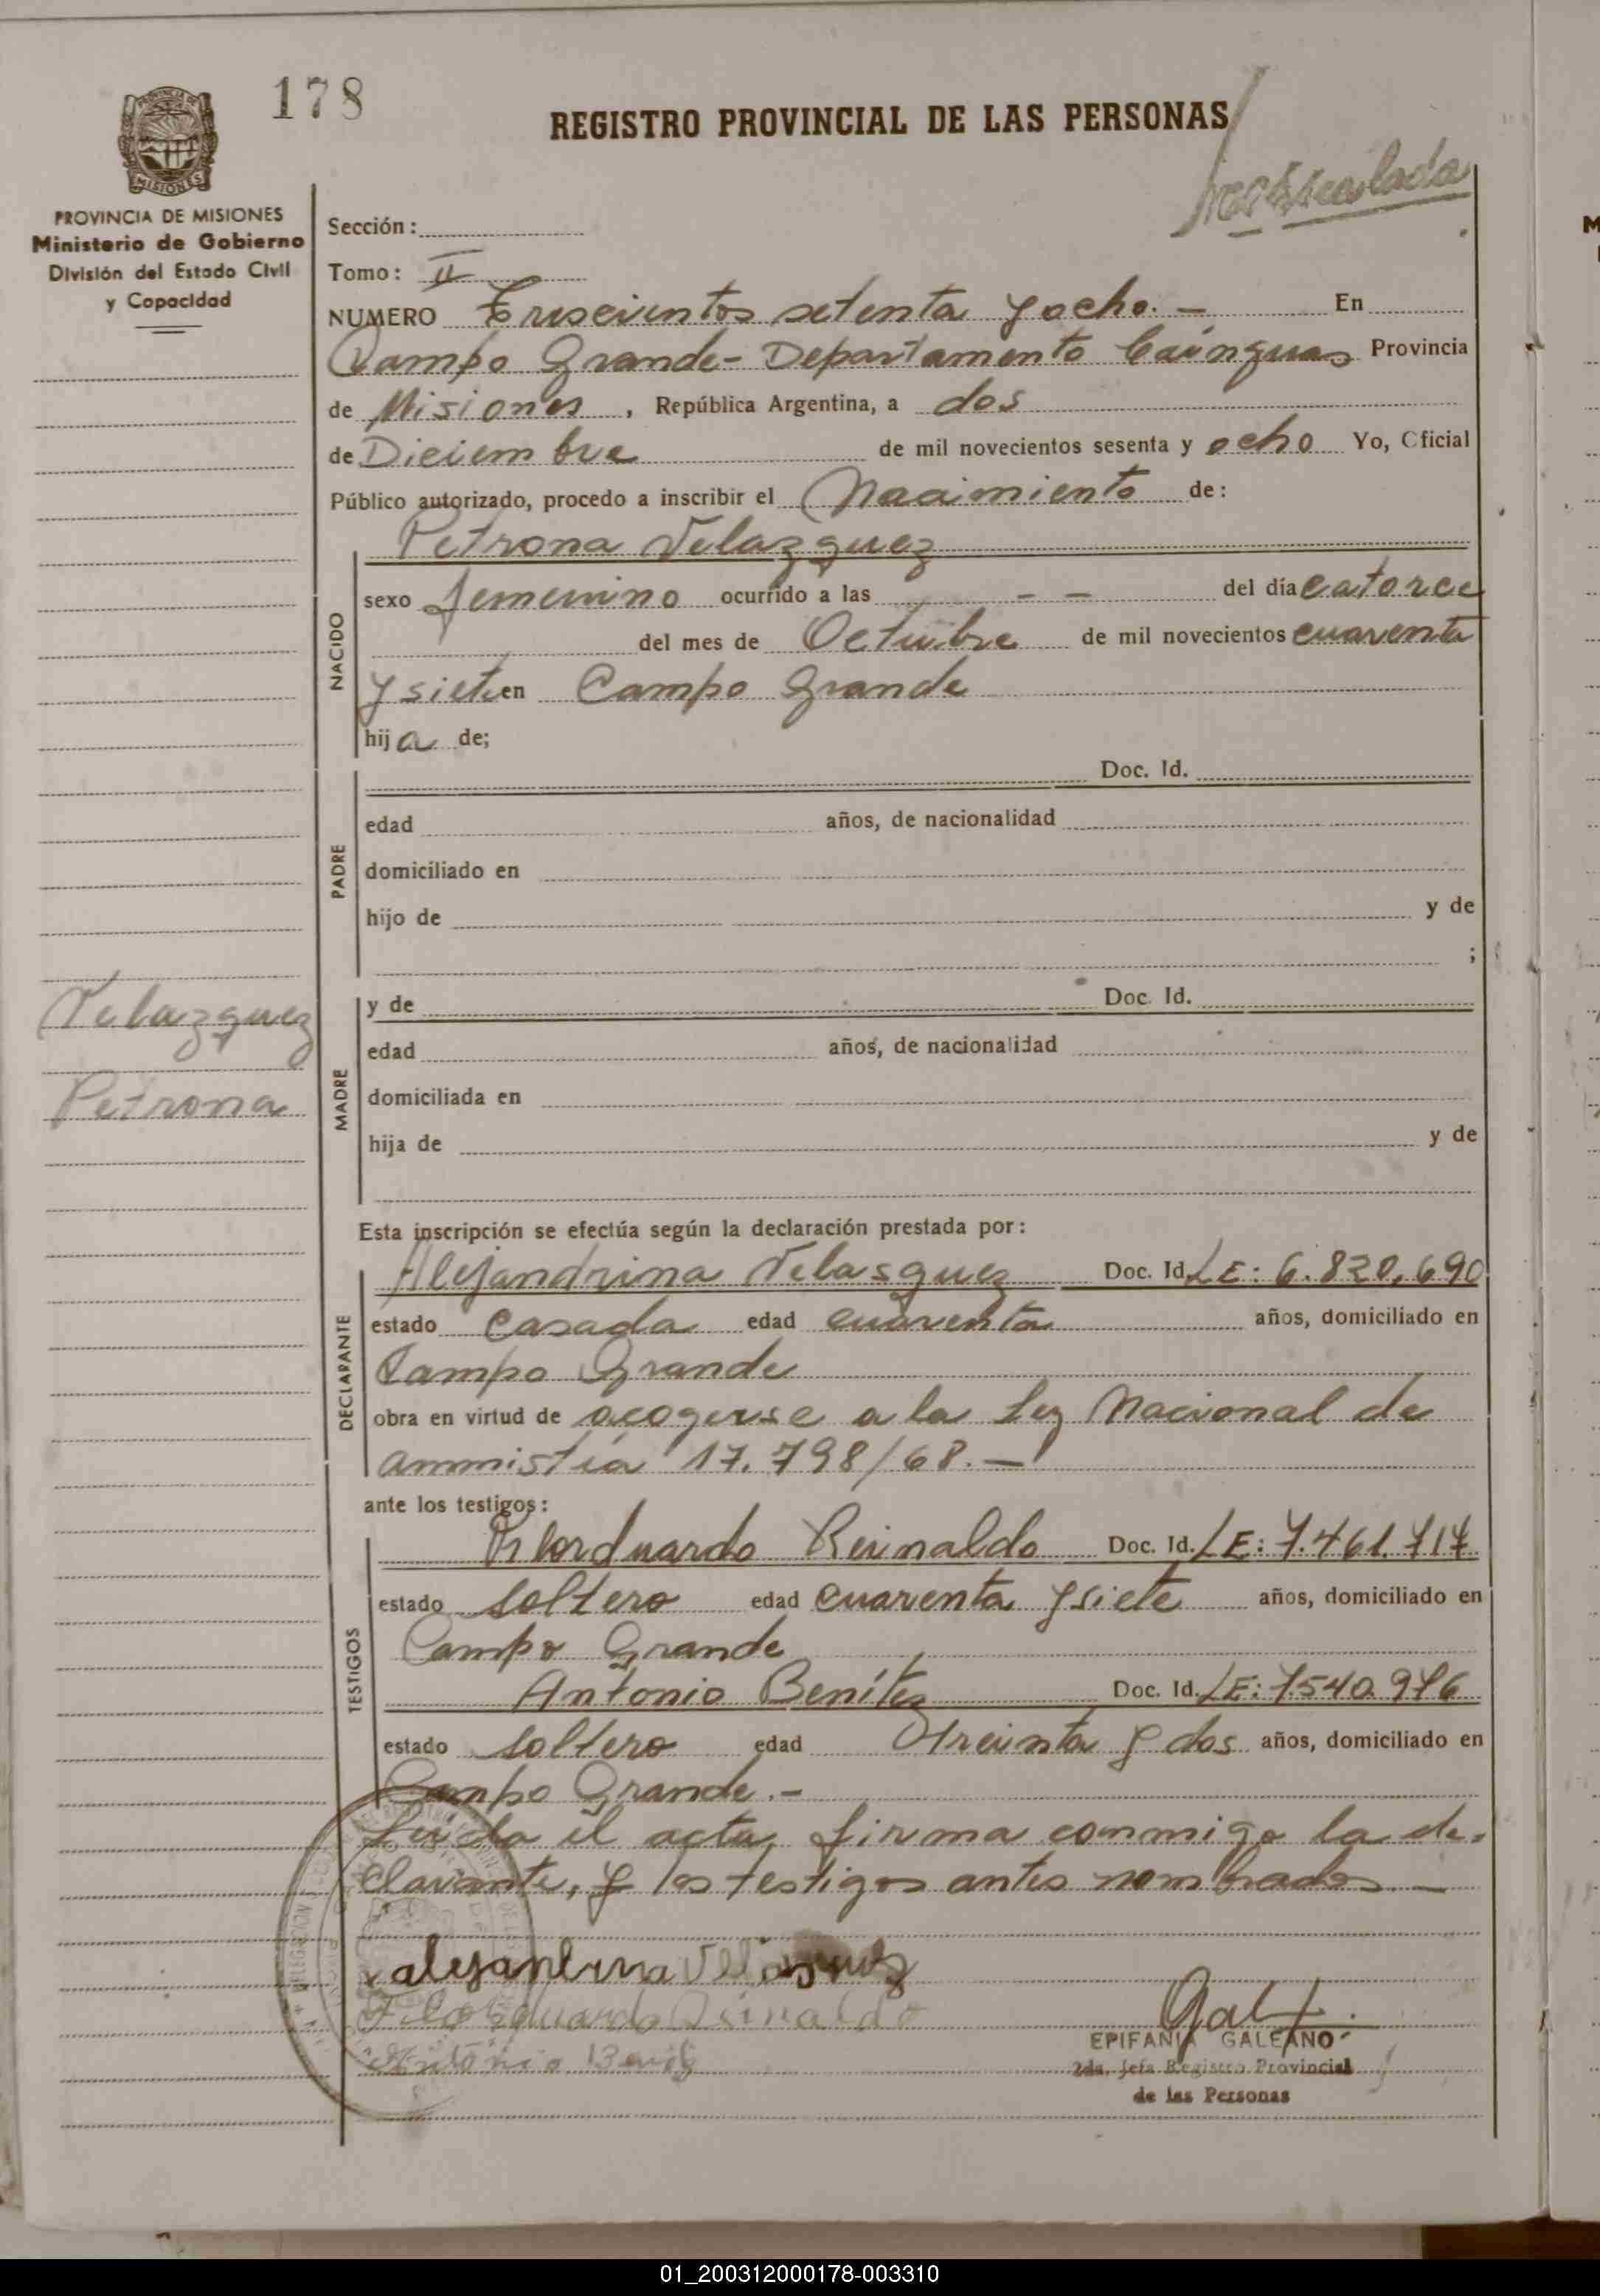 178
REGISTRO PROVINCIAL DE LAS PERSONAS
MISIONES
PROVINCIA DE MISIONES
Ministerio de Gobierno
División del Estado Civil
y Capacidad
Sección:
Tomo: II
NUMERO Trescientos setenta y ocho.- En
Campo Grande- Departamento Cainguas Provincia
de Misiones, República Argentina, a dos
de Diciembre de mil novecientos sesenta y ocho Yo, Oficial
Público autorizado, procedo a inscribir el Nacimiento de:
Petrona Velazquez
NACIDO
sexo femenino ocurrido a las - - del día catorce
del mes de Octubre de mil novecientos cuarenta
y siete en Campo Grande
hija de;
PADRE
Doc. Id.
edad años, de nacionalidad
domiciliado en
hijo de y de
;
Velazquez
Petrona
MADRE
y de Doc. Id.
edad años, de nacionalidad
domiciliada en
hija de y de
Esta inscripción se efectúa según la declaración prestada por:
DECLARANTE
Alejandrina Velasquez Doc. Id. LE: 6.820,690
estado Casada edad cuarenta años, domiciliado en
Campo Grande
obra en virtud de acogerse a la Ley Nacional de
ammistía 17.798/68.-
ante los testigos:
TESTIGOS
Reinaldo Doc. Id. LE: 7.461.717.
estado soltero edad cuarenta y siete años, domiciliado en
Campo Grande
Antonio Benítez Doc. Id. LE: 7.540.976
estado soltero edad treinta y dos años, domiciliado en
Campo Grande.-
Leída el acta, firma conmigo la de-
clarante, y los testigos antes nombrados.-
alejandrina Velasquez
Antonio
EPIFANIA GALEANO
2da. Jefa Registro Provincial
de las Personas
01_200312000178-003310